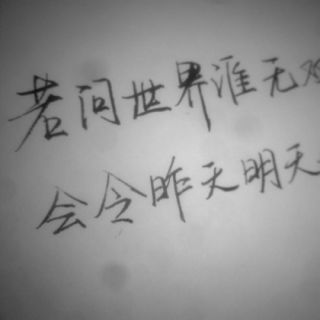 若问世界谁无
会令昨天明天